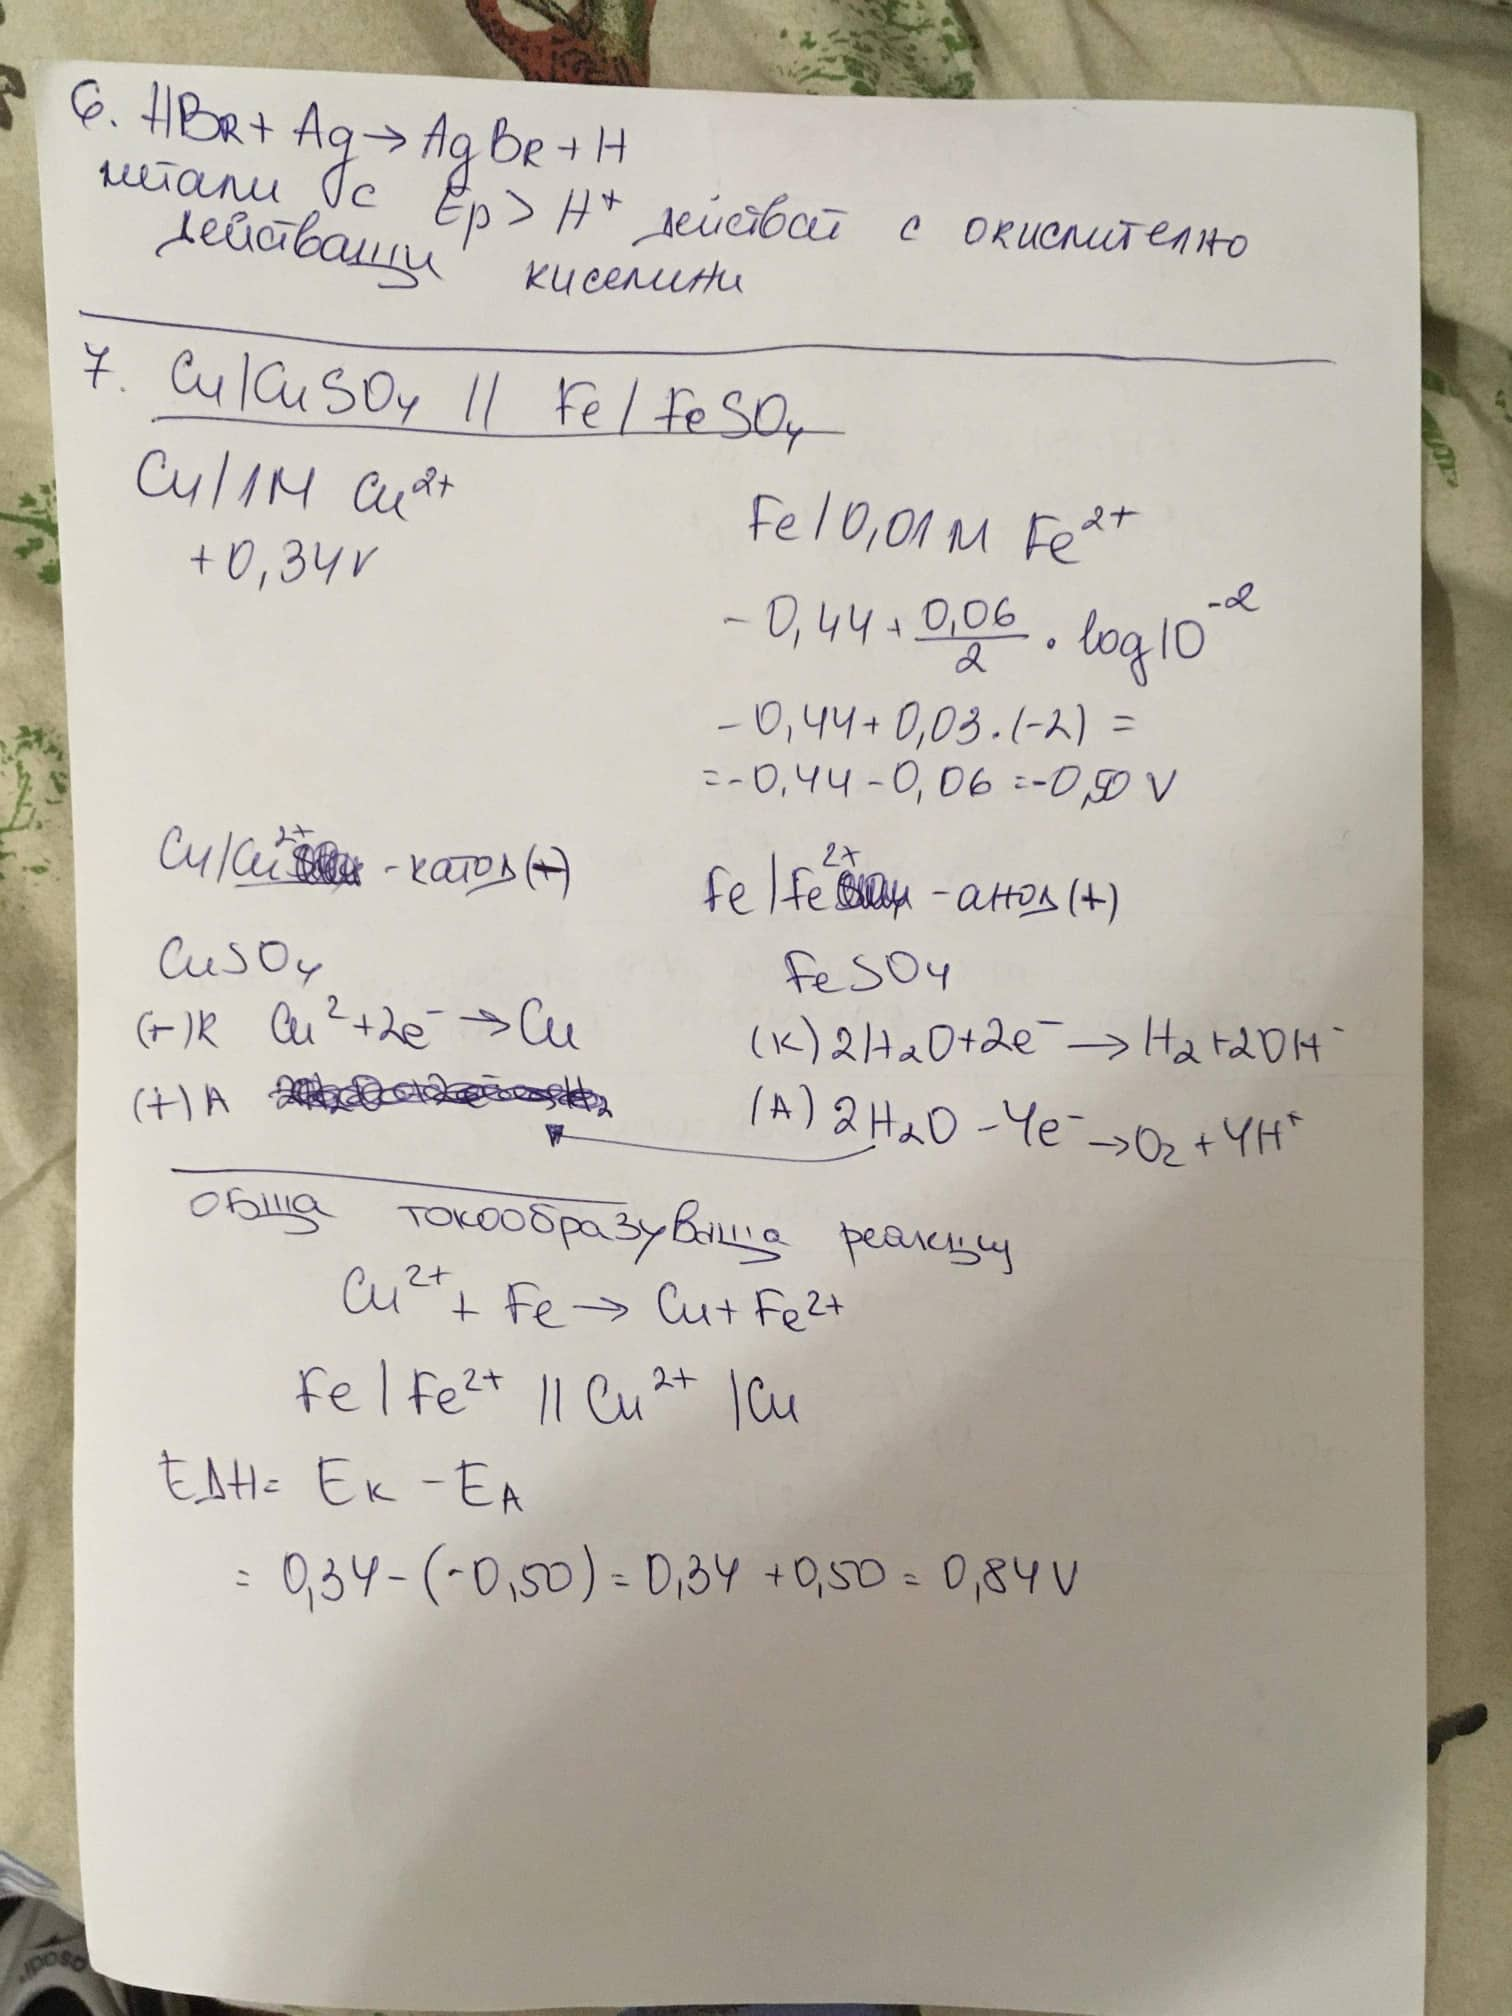 6. HBr + Ag → AgBr + H
метали с Ep > H⁺ действат с окислително
действащи киселини
7. Cu/CuSO₄ // Fe/FeSO₄
Cu/1M Cu²⁺
+0,34V
Fe/0,01M Fe²⁺
-0,44 + 0,06/2 . log10⁻²
-0,44 + 0,03.(-2) =
= -0,44 - 0,06 = -0,50 V
Cu/Cu²⁺ - катод (+)
Fe/Fe²⁺ - анод (+)
CuSO₄
FeSO₄
(-)K Cu² + 2e⁻ → Cu
(K) 2H₂O + 2e⁻ → H₂ + 2OH⁻
(+)A
(A) 2H₂O - 4e⁻ → O₂ + 4H⁺
обща токообразуваща реакция
Cu²⁺ + Fe → Cu + Fe²⁺
Fe | Fe²⁺ // Cu²⁺ | Cu
ЕДН = Eк - EА
= 0,34 - (-0,50) = 0,34 + 0,50 = 0,84 V